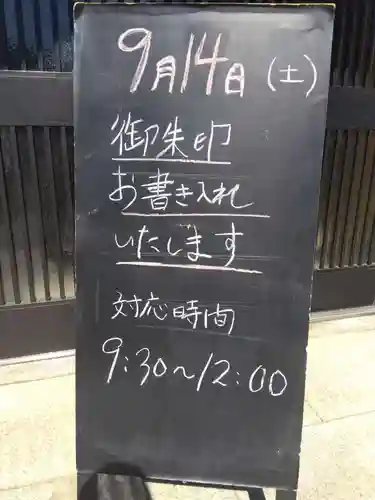 9月14日(土)
御朱印
お書き入れ
いたします
対応時間
9:30~12:00